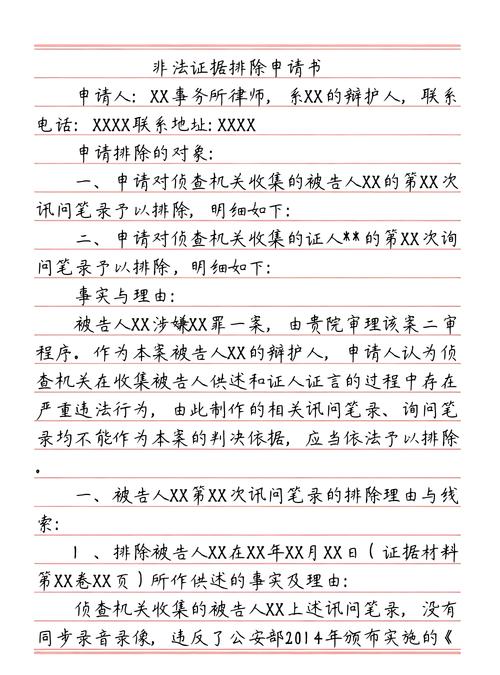 非法证据排除申请书
申请人：XX事务所律师，系XX的辩护人，联系
电话：XXXX联系地址:XXXX
申请排除的对象：
一、申请对侦查机关收集的被告人XX的第XX次
讯问笔录予以排除，明细如下：
二、申请对侦查机关收集的证人**的第XX次询
问笔录予以排除，明细如下：
事实与理由：
被告人XX涉嫌XX罪一案，由贵院审理该案二审
程序。作为本案被告人XX的辩护人，申请人认为侦
查机关在收集被告人供述和证人证言的过程中存在
严重违法行为，由此制作的相关讯问笔录、询问笔
录均不能作为本案的判决依据，应当依法予以排除
。
一、被告人XX第XX次讯问笔录的排除理由与线
索：
1、排除被告人XX在XX年XX月XX日（证据材料
第XX卷XX页）所作供述的事实及理由：
侦查机关收集的被告人XX上述讯问笔录，没有
同步录音录像，违反了公安部2014年颁布实施的《